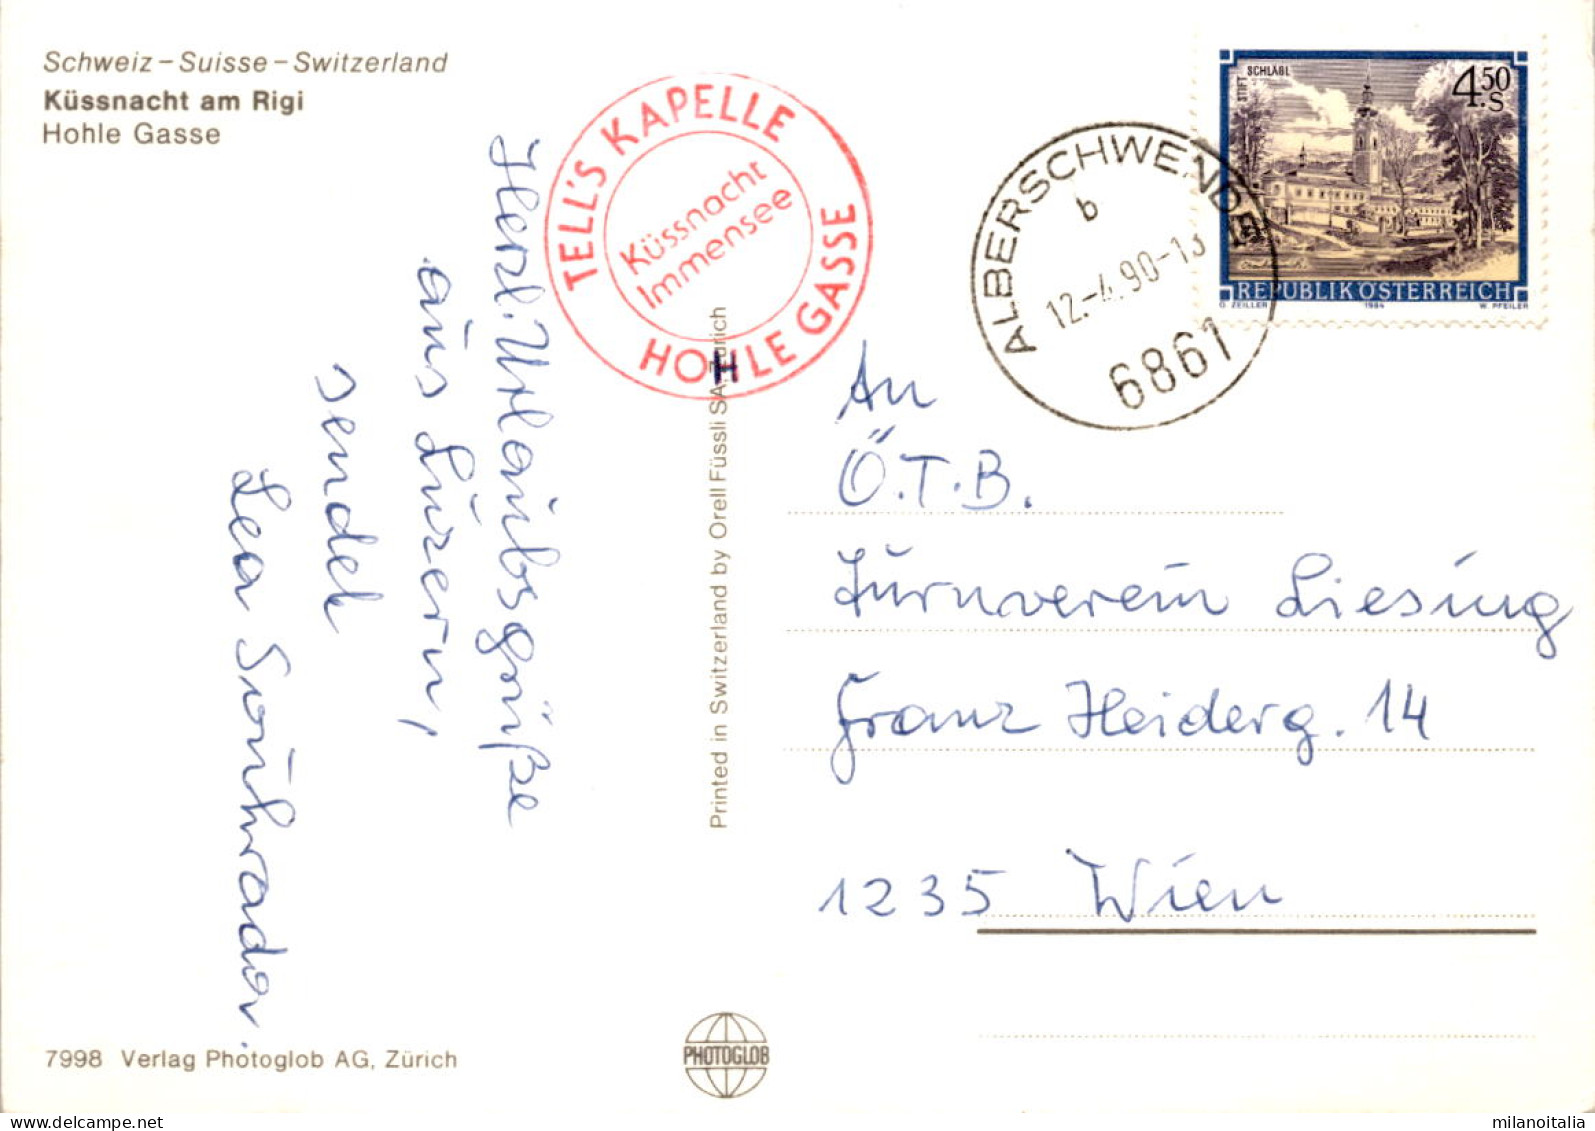 Schweiz – Suisse – Switzerland
Küssnacht am Rigi
Hohle Gasse
TELL'S KAPELLE
Küssnacht
Immensee
HOHLE GASSE
ALBERSCHWENDE
b
12.-4.90-13
6861
STIFT SCHLÄGL
4.50
S
REPUBLIK ÖSTERREICH
O. ZEILLER 1984 W. PFEILER
Herzl. Urlaubsgrüße
aus Luzern,
sendet
Lea Souhrada.
Printed in Switzerland by Orell Füssli SA, Zürich
An
Ö.T.B.
Turnverein Liesing
Franz Heiderg. 14
1235 Wien
7998 Verlag Photoglob AG, Zürich
PHOTOGLOB
milanoitalia